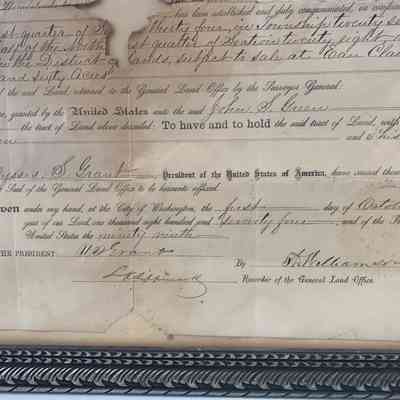 has been established and duly consummated, in conform
st quarter of S thirty four, in Township twenty se
half of the North st quarter of Section twenty eight
in the District of Lands, subject to sale at Eau Clai
and sixty Acres
the said Land returned to the General Land Office by the Surveyor General:
ore, granted by the United States unto the said John S. Owen
the tract of Land above described: To have and to hold the said tract of Land, with
en and to his
lysses S. Grant President of the United States of America, have caused these
Seal of the General Land Office to be hereunto affixed.
ven under my hand, at the City of Washington, the first day of Octob
year of our Lord, one thousand eight hundred and seventy four, and of the
United States the ninety ninth
THE PRESIDENT: U. S. Grant
By
Recorder of the General Land Office.